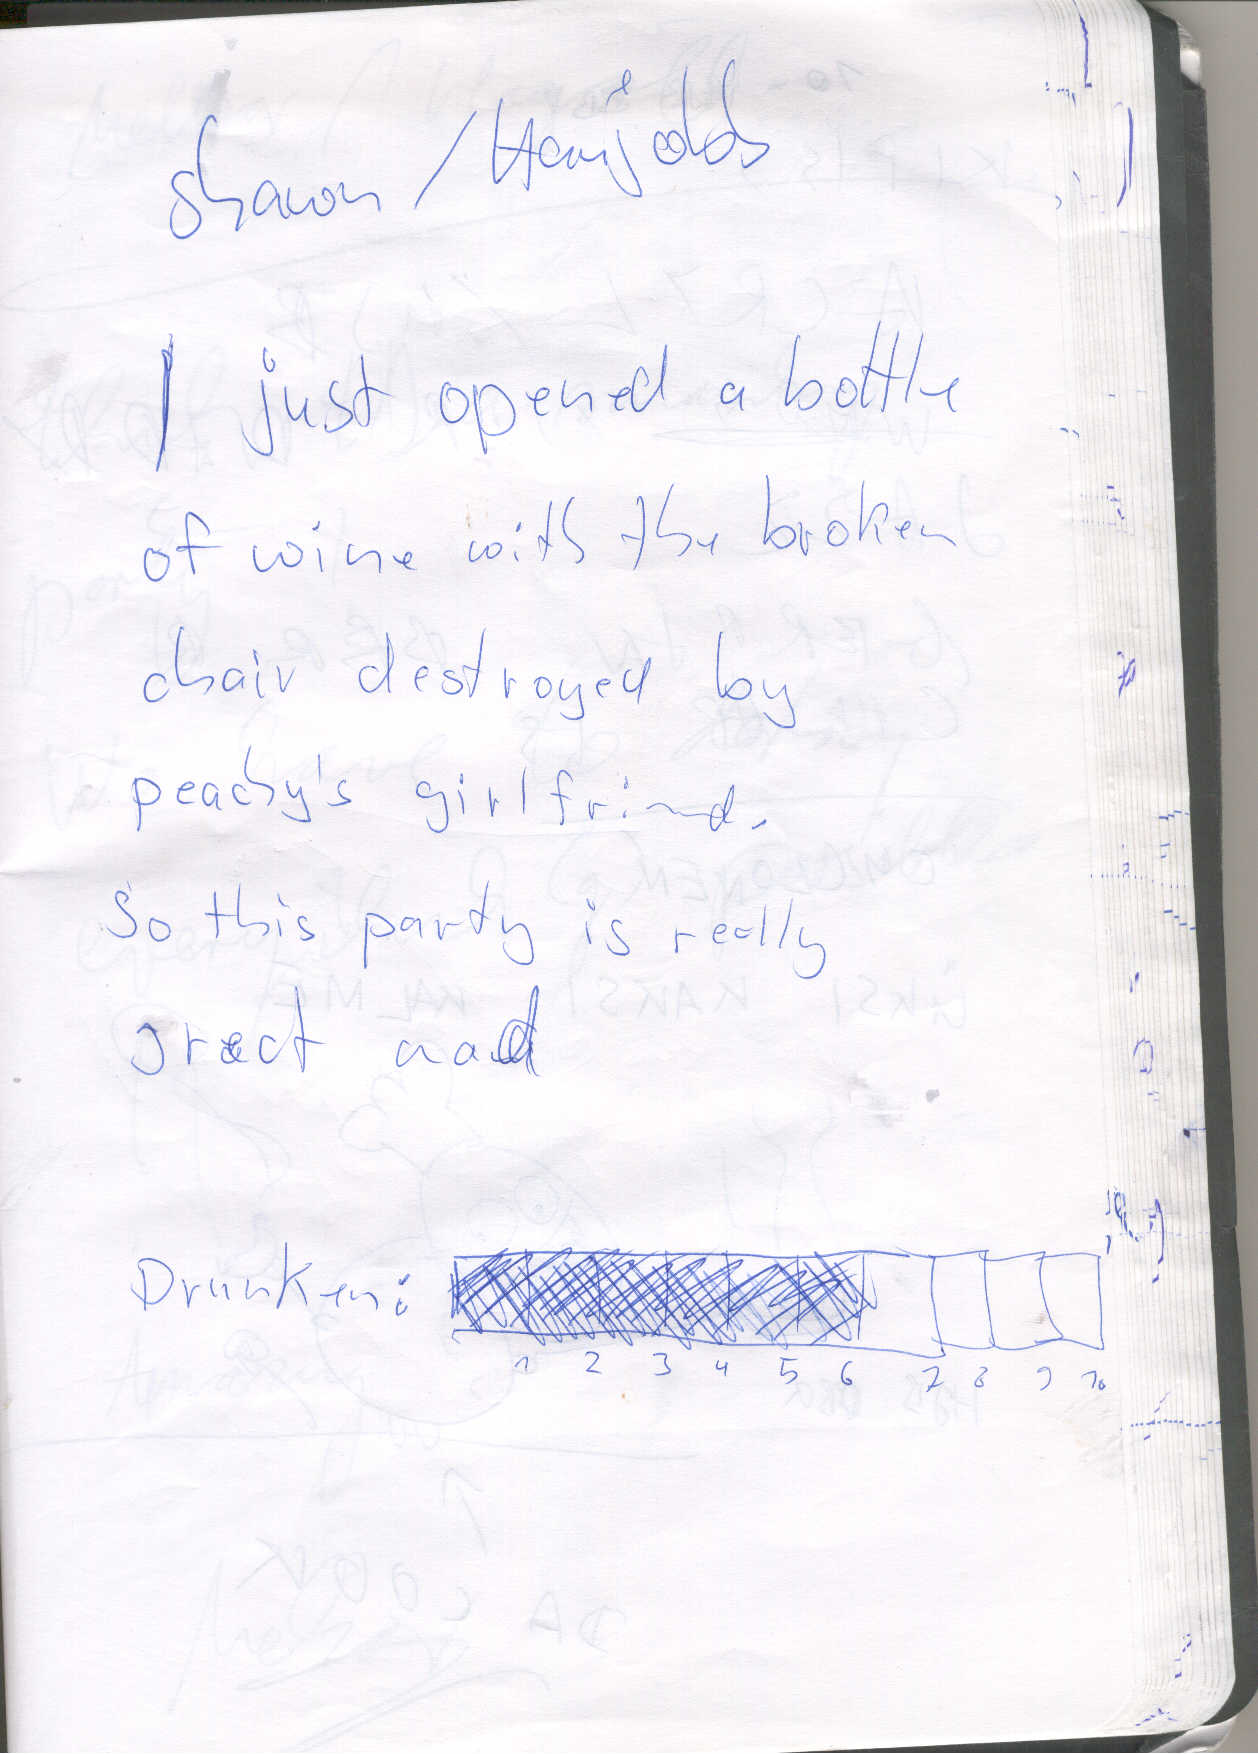 I just opened a bottle
of wine with the broken
chair destroyed by
peachy's girlfrind.
So this party is really
great and
Drunken:
1 2 3 4 5 6 7 8 9 10